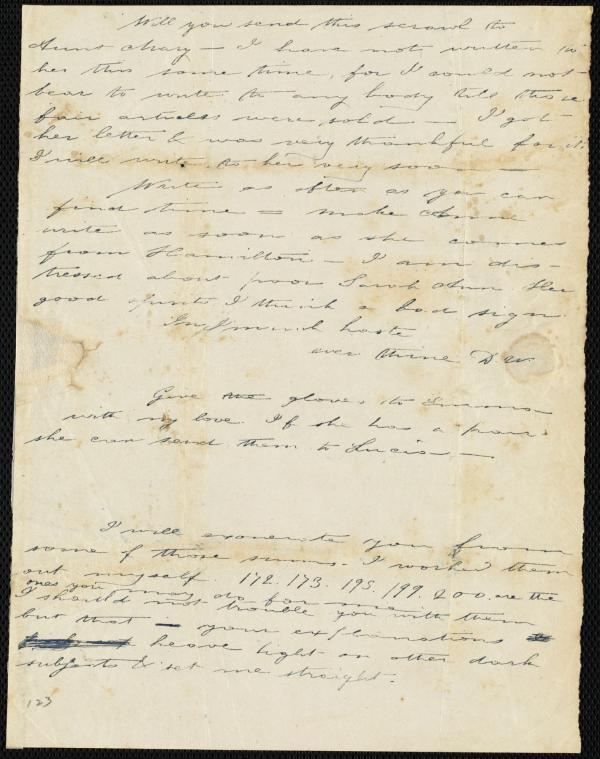 Will you send this scrawl to
Aunt Mary - I have not written to
her this some time, for I could not
bear to write to any body till those
fair articles were sold - I got
her letter & was very thankful for it.
I will write to her very soon -
Write as often as you can
find time - make Anne
write as soon as she comes
from Hamilton - I am dis-
tressed about poor Sarah Ann Her
good spirits I think a bad sign
In much haste
ever thine D. W.
Give the gloves to Emma
with my love. If she has a pair
she can send them to Lucia -
I will exonerate you from
some of those sums. I worked them
out myself. 172. 173. 195. 199. 200. are the
ones you may do for me
I should not trouble you with them
but that your explanations
heave light on other dark
subjects & set me straight.
123